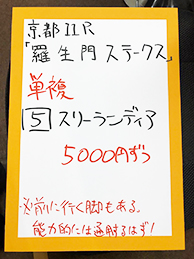 京都11R
「羅生門ステークス」
単複
5 スリーランディア
5000円ずつ
前に行く脚もある。
能力的には通用するはず!